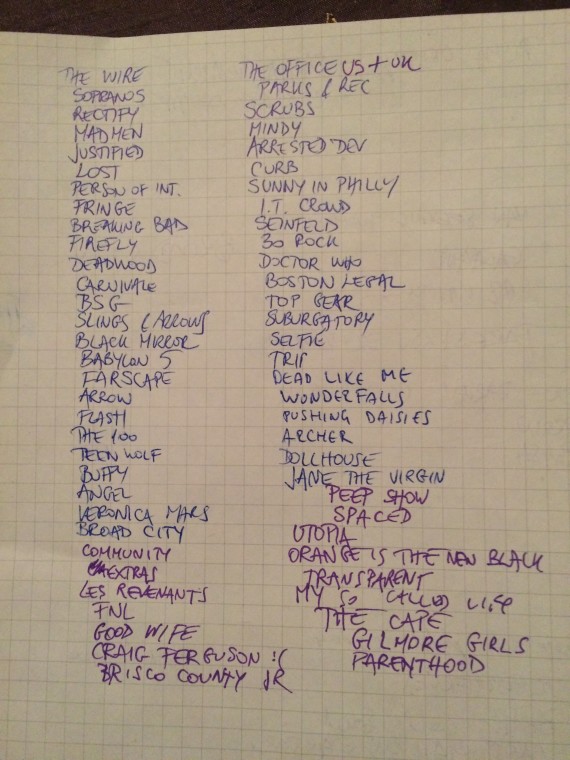 THE WIRE
SOPRANOS
RECTIFY
MAD MEN
JUSTIFIED
LOST
PERSON OF INT.
FRINGE
BREAKING BAD
FIREFLY
DEADWOOD
CARNIVALE
BSG
SLINGS & ARROWS
BLACK MIRROR
BABYLON 5
FARSCAPE
ARROW
FLASH
THE 100
TEEN WOLF
BUFFY
ANGEL
VERONICA MARS
BROAD CITY
COMMUNITY
EXTRAS
LES REVENANTS
FNL
GOOD WIFE
CRAIG FERGUSON :(
BRISCO COUNTY JR
THE OFFICE US + UK
PARKS & REC
SCRUBS
MINDY
ARRESTED DEV
CURB
SUNNY IN PHILLY
I.T. CROWD
SEINFELD
30 ROCK
DOCTOR WHO
BOSTON LEGAL
TOP GEAR
SUBURGATORY
SELFIE
TRIP
DEAD LIKE ME
WONDERFALLS
PUSHING DAISIES
ARCHER
DOLLHOUSE
JANE THE VIRGIN
PEEP SHOW
SPACED
UTOPIA
ORANGE IS THE NEW BLACK
TRANSPARENT
MY SO CALLED LIFE
THE CAPE
GILMORE GIRLS
PARENTHOOD